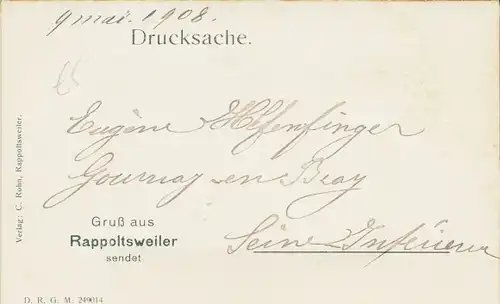 9 mai. 1908.
Drucksache.
Eugène Helfenfinger
Gournay en Bray
Seine Inférieure
Gruß aus
Rappoltsweiler
sendet
Verlag: C. Rohn, Rappoltsweiler.
D. R. G. M. 249014